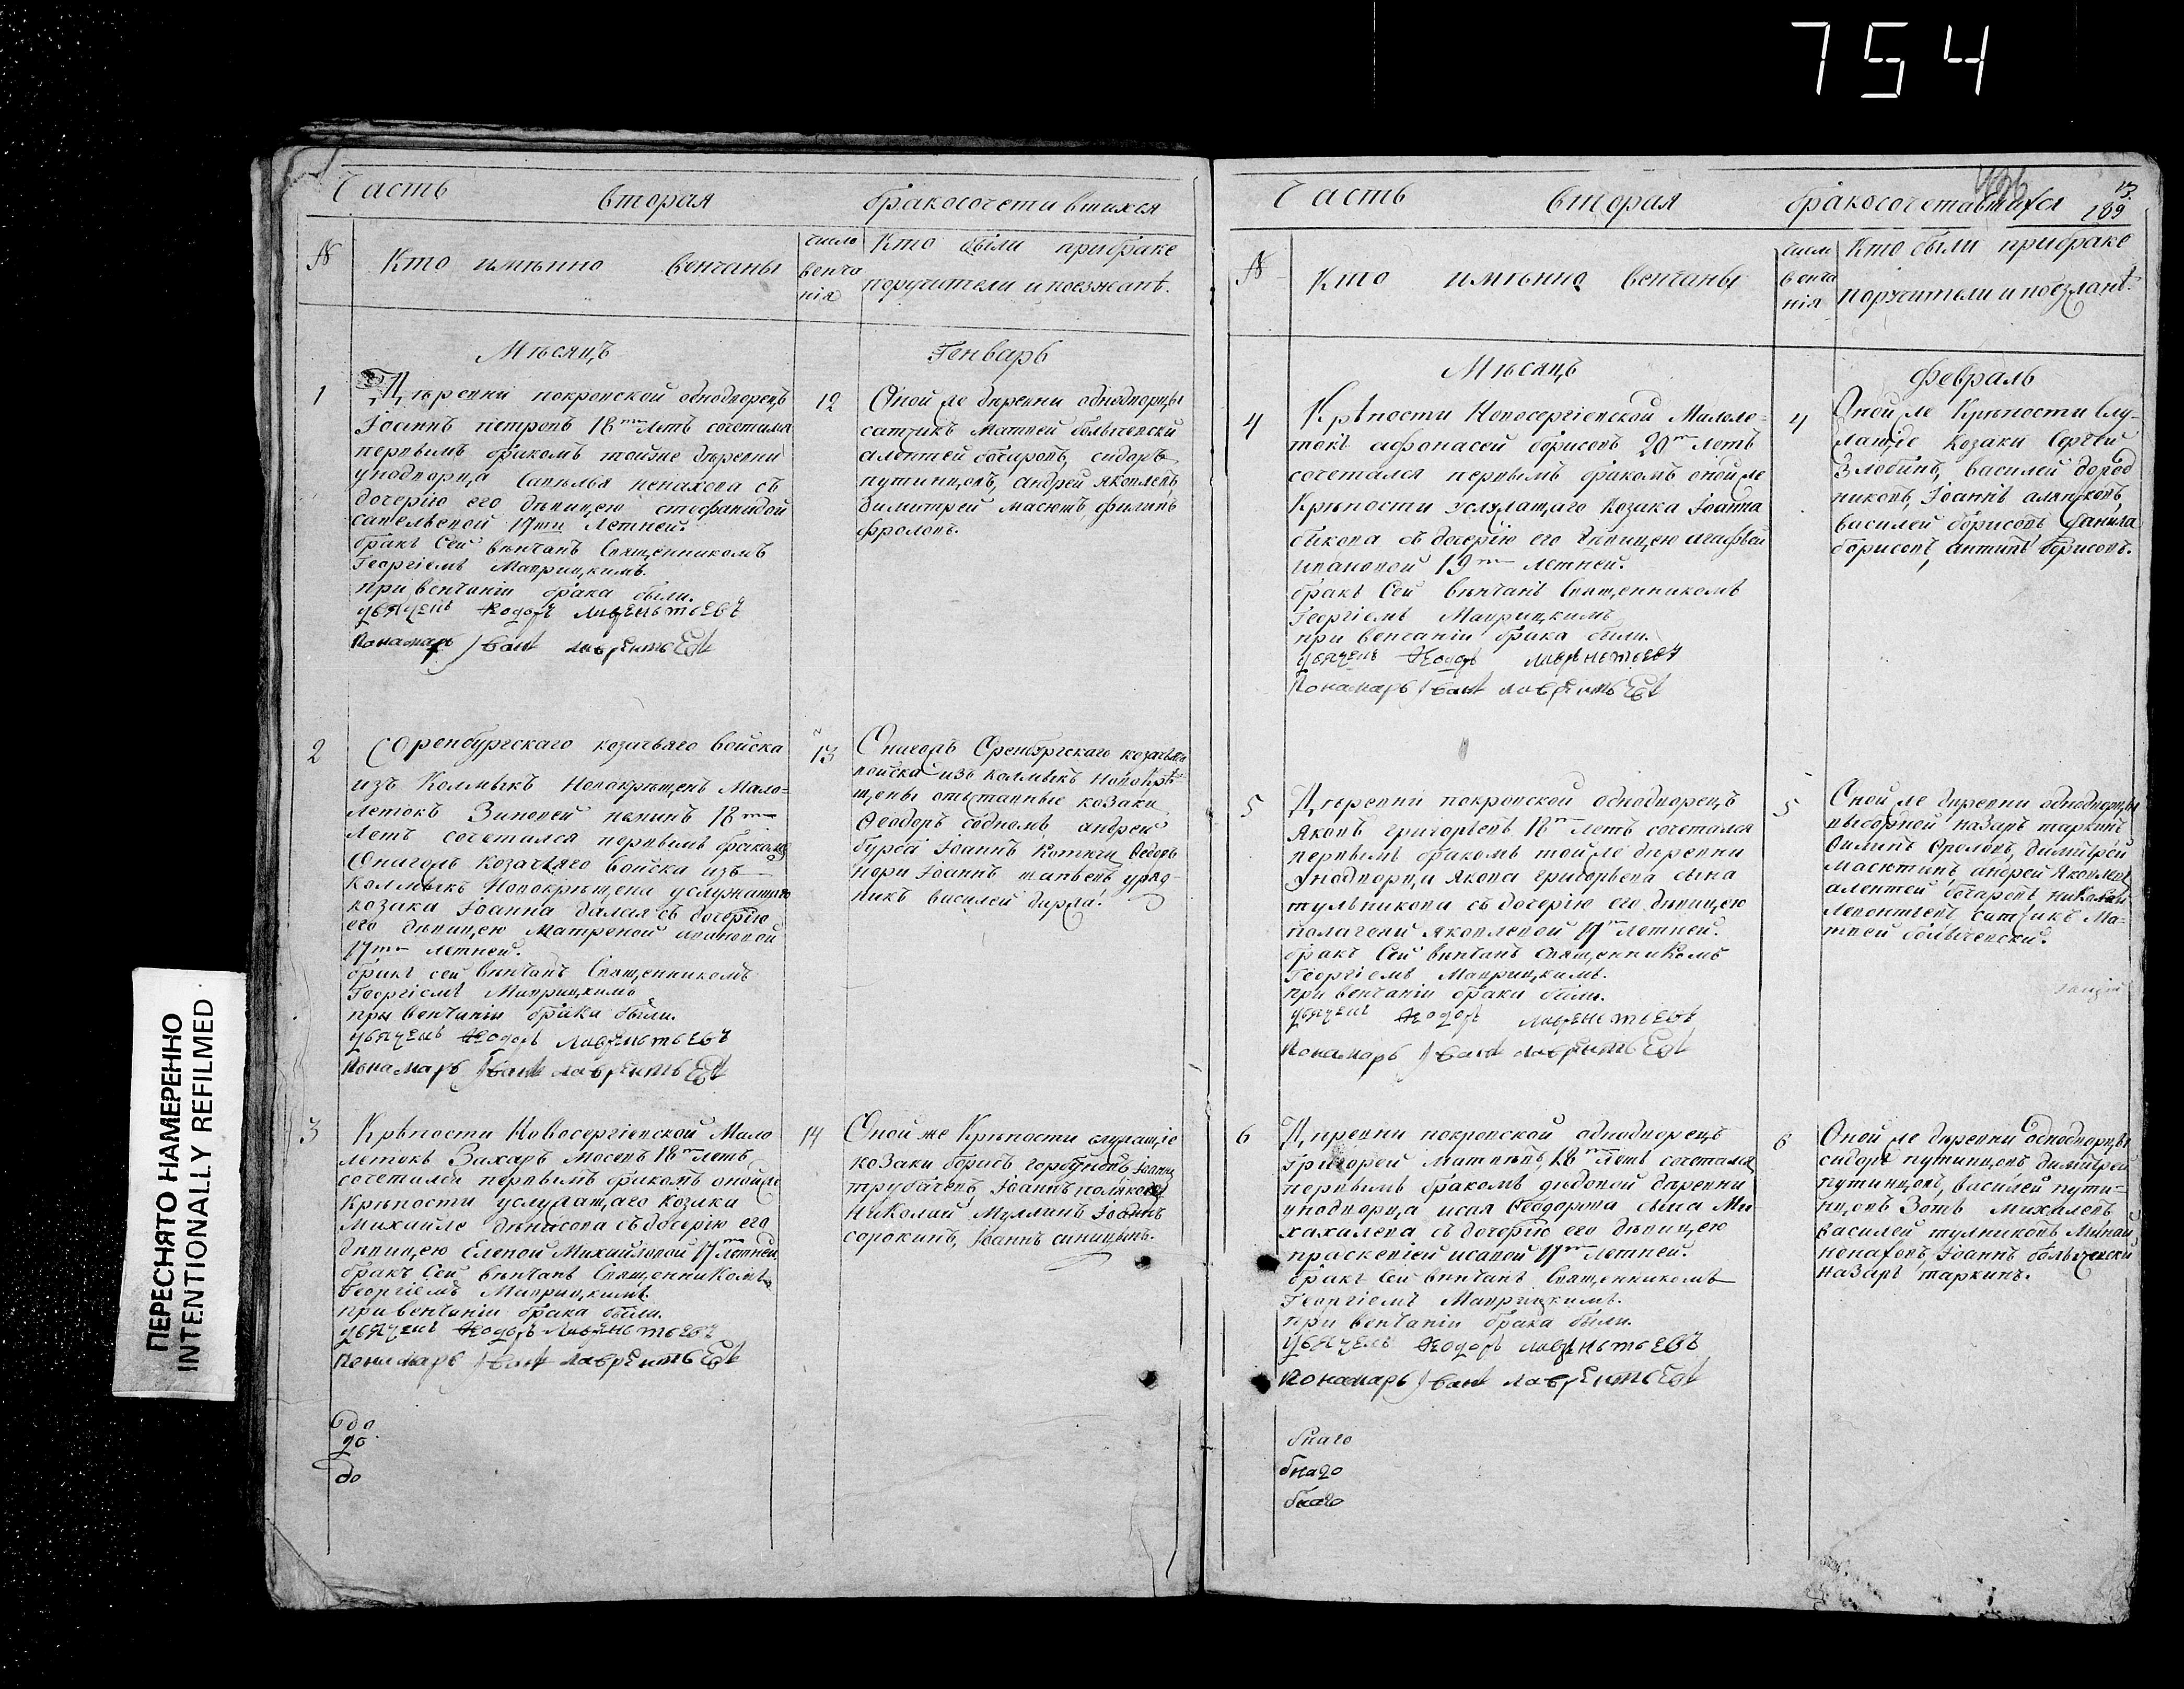 754
Часть вторая бракосочетавшихся
№
Кто имянно венчаны
число венча нія
Кто были при браке
поручители и поезжанѣ.
Мѣсяцъ Генварь
1
Дѣревни покровской однодворецъ
Іоаннъ петровъ 18ти летъ сочетался
первымъ бракомъ тойже дѣревни
у нодворца Савелья ненахова съ
дочерію его дѣвицею стефанидой
савельевой 17ти Летней.
бракъ Сей вѣнчанъ Священникомъ
Георгіемъ Маврицкимъ.
при венчаніи брака были.
дьячекъ Ѳедоръ лаврентьевъ
Понамарь Іванъ лаврентьевъ
12
Оной же дѣревни однодворцы
сатникъ Матвей болычевски
алентей бочаровъ, сидоръ
путинцовъ, андрей яковлевъ
димитрей масютъ филипъ
фроловъ.
2
Оренбургскаго козачьяго войска
изъ Колмыкъ Новокрѣщенъ Мало=
летокъ Зиновей 18ти
Летъ сочетался первымъ бракомъ
Онагожъ козачьяго войска изъ
Колмыкъ Новокрѣщена услужащаго
козака Іоанна далая съ дочерію
его дѣвицею Матреной ивановой
17ти летней.
бракъ сей вѣнчанъ Священникомъ
Георгіемъ Маврицкимъ
при венчаніи брака были.
дьячекъ Ѳедоръ лаврентьевъ
Понамарь Іванъ лаврентьевъ
13
Онагожъ Оренбургскаго козачьяго
войска изъ калмыкъ новокрѣ=
щены отставные козаки
Ѳеодоръ содномъ андрей
бурса Іоаннъ Котючи Ѳедоръ
нори Іоаннъ уряд=
никъ василей дарла!
3
Крѣпости Новосергіевской Мало
летокъ Захаръ мосевъ 18ти летъ
сочетался первымъ бракомъ онойже
Крѣпости услужащаго козака
Михайле дѣнисова съ дочерію его
дѣвицею Еленой Михайловой 17ти летней
бракъ Сей вѣнчанъ Священникомъ
Георгіемъ Маврицкимъ.
при венчаніи брака были.
дьячекъ Ѳедоръ лаврентьевъ
Понамарь Іванъ лаврентьевъ
14
Оной же Крѣпости служащіе
козаки борисъ горбуновъ Іоаннъ
трубачевъ, Іоаннъ поляковъ
Николай Муллинъ Іоаннъ
сорокинъ, Іоаннъ синицынъ.
Часть вторая бракосочетавшихся
13.
189
№
Кто имянно венчаны
числ венча нія
Кто были при браке
поручители и поезжанѣ.
Мѣсяцъ Февраль
4
Крѣпости Новосергіевской Малоле=
токъ афонасей борисовъ 20ти летъ
сочетался первымъ бракомъ онойже
Крѣпости услужащаго козака Іоанна
быкова съ дочерію его дѣвицею агафьей
ивановой 19ти летней.
бракъ Сей вѣнчанъ Священникомъ
Георгіемъ Маврицкимъ
при венчаніи брака были.
дьячекъ Ѳедоръ лаврентьевъ
Понамарь Іванъ лаврентьевъ
4
Оной же Крѣпости Слу=
жащіе Козаки Сергей
Злобинъ, василей
Іоаннъ аляпковъ,
василей борисовъ данила
борисовъ, антипъ борисовъ.
5
Дѣревни покровской однодворецъ
Яковъ григорьевъ 18ти летъ сочетался
первымъ бракомъ тойже дѣревни
у нодворца якова григорьева сына
тульникова съ дочерію его дѣвицею
полагеей яковлевой 17ти летней.
бракъ Сей вѣнчанъ Священникомъ
Георгіемъ Маврицкимъ.
при венчаніи брака были.
дьячекъ Ѳедоръ лаврентьевъ
Понамарь Іванъ лаврентьевъ
5
Оной же дѣревни однодворцы
выборней назаръ таркинъ
Филипъ Фроловъ, димитрей
масютинъ, андрей яковлев
алентей бочаровъ, николай
Леонтьевъ сатникъ Ма=
твей болычевски.
6
Дѣревни покровской однодворецъ
Григорей Матвѣевъ, 18ти летъ сочетался
первымъ бракомъ дѣревни
у нодворца исая Ѳеодорова сына Ми
хахилева съ дочерію его дѣвицею
праскевіей исаевой 17ти летней.
бракъ Сей вѣнчанъ Священникомъ
Георгіемъ Маврицкимъ.
при венчаніи брака были.
дьячекъ Ѳедоръ лаврентьевъ
Понамарь Іванъ лаврентьевъ
6
Оной же дѣревни однодворцы
сидоръ путинцовъ димитрей
путинцовъ, василей пути=
нцовъ Зотъ михалевъ
василей тулниковъ Минай
ненаховъ, Іоаннъ болычевски
назаръ таркинъ.
ПЕРЕСНЯТО НАМЕРЕННО
INTENTIONALLY REFILMED